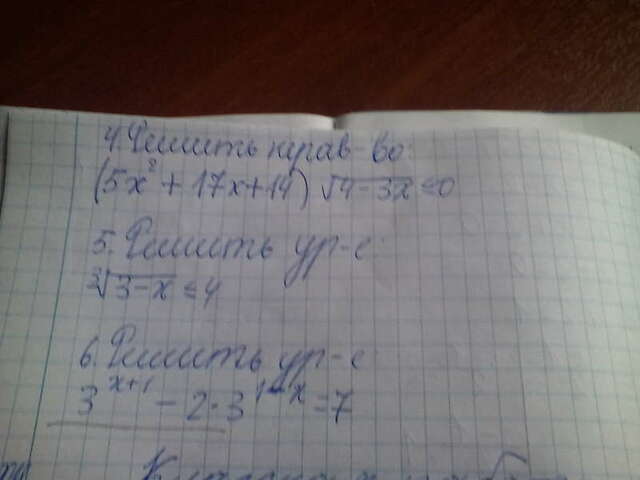 4. Решить нерав-во:
(5x² + 17x + 14) √4-3x ≤ 0
5. Решить ур-е:
∛3-x ≤ 4
6. Решить ур-е
3^{x+1} - 2·3^{1-x} = 7